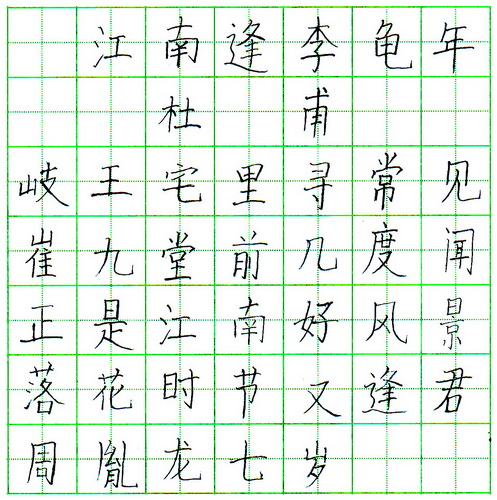 江南逢李龟年
杜甫
岐王宅里寻常见
崔九堂前几度闻
正是江南好风景
落花时节又逢君
周胤龙七岁